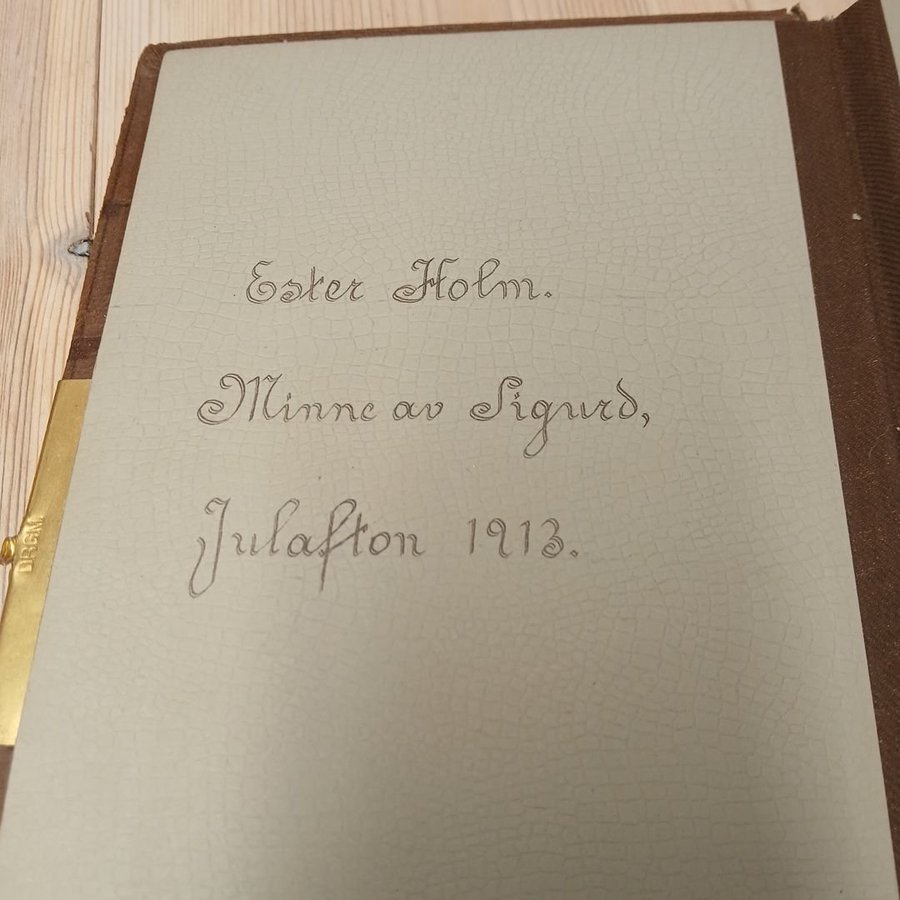 Ester Holm.
Minne av Sigurd,
Julafton 1913.
DRGM.